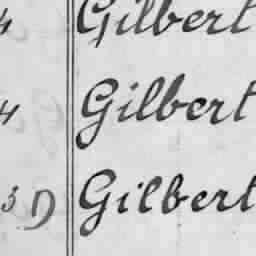 4 Gilbert
4 Gilbert
3 D Gilbert